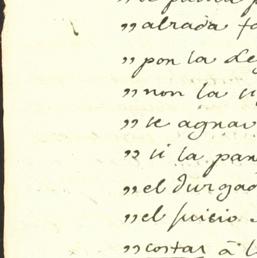 „ alzada fo
„ por la de
„ non la si
„ se agrav
„ si la par
„ el Jurgad
„ el juicio
„ costar à l